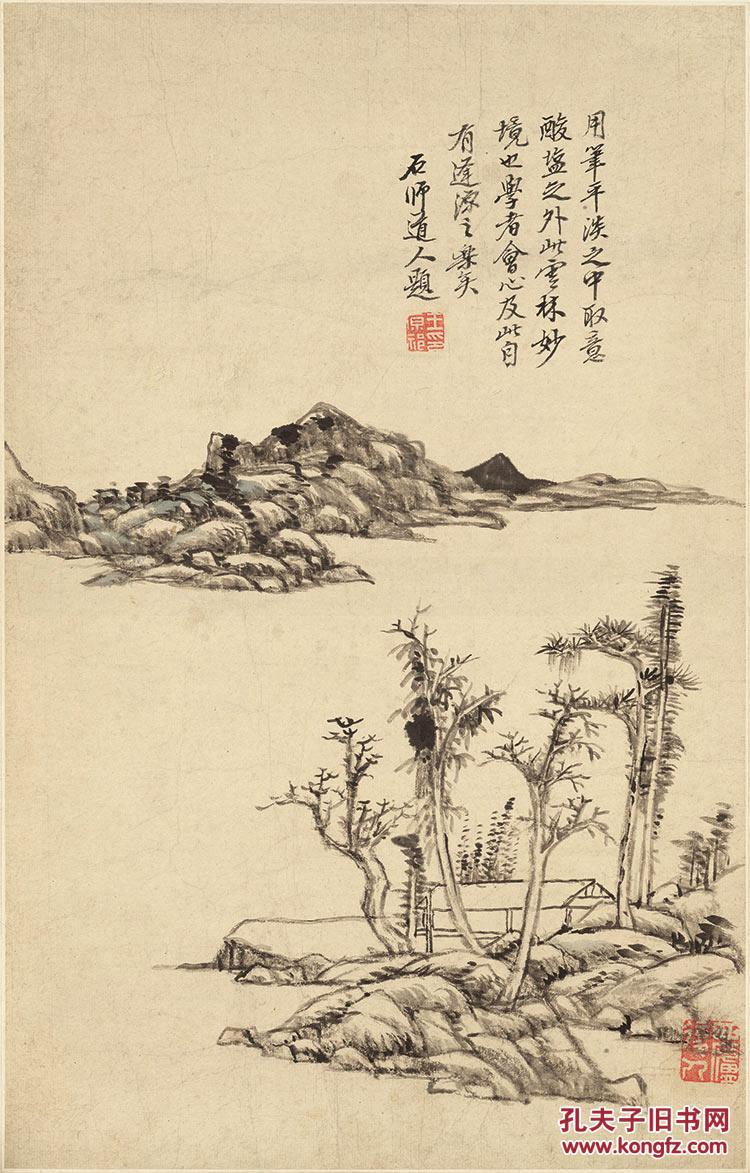 用筆平淡之中取意
酸塩之外此雲林妙
境也學者會心及此自
有逢源之樂矣
石師道人題
王原祁印
孔夫子旧书网
www.kongfz.com